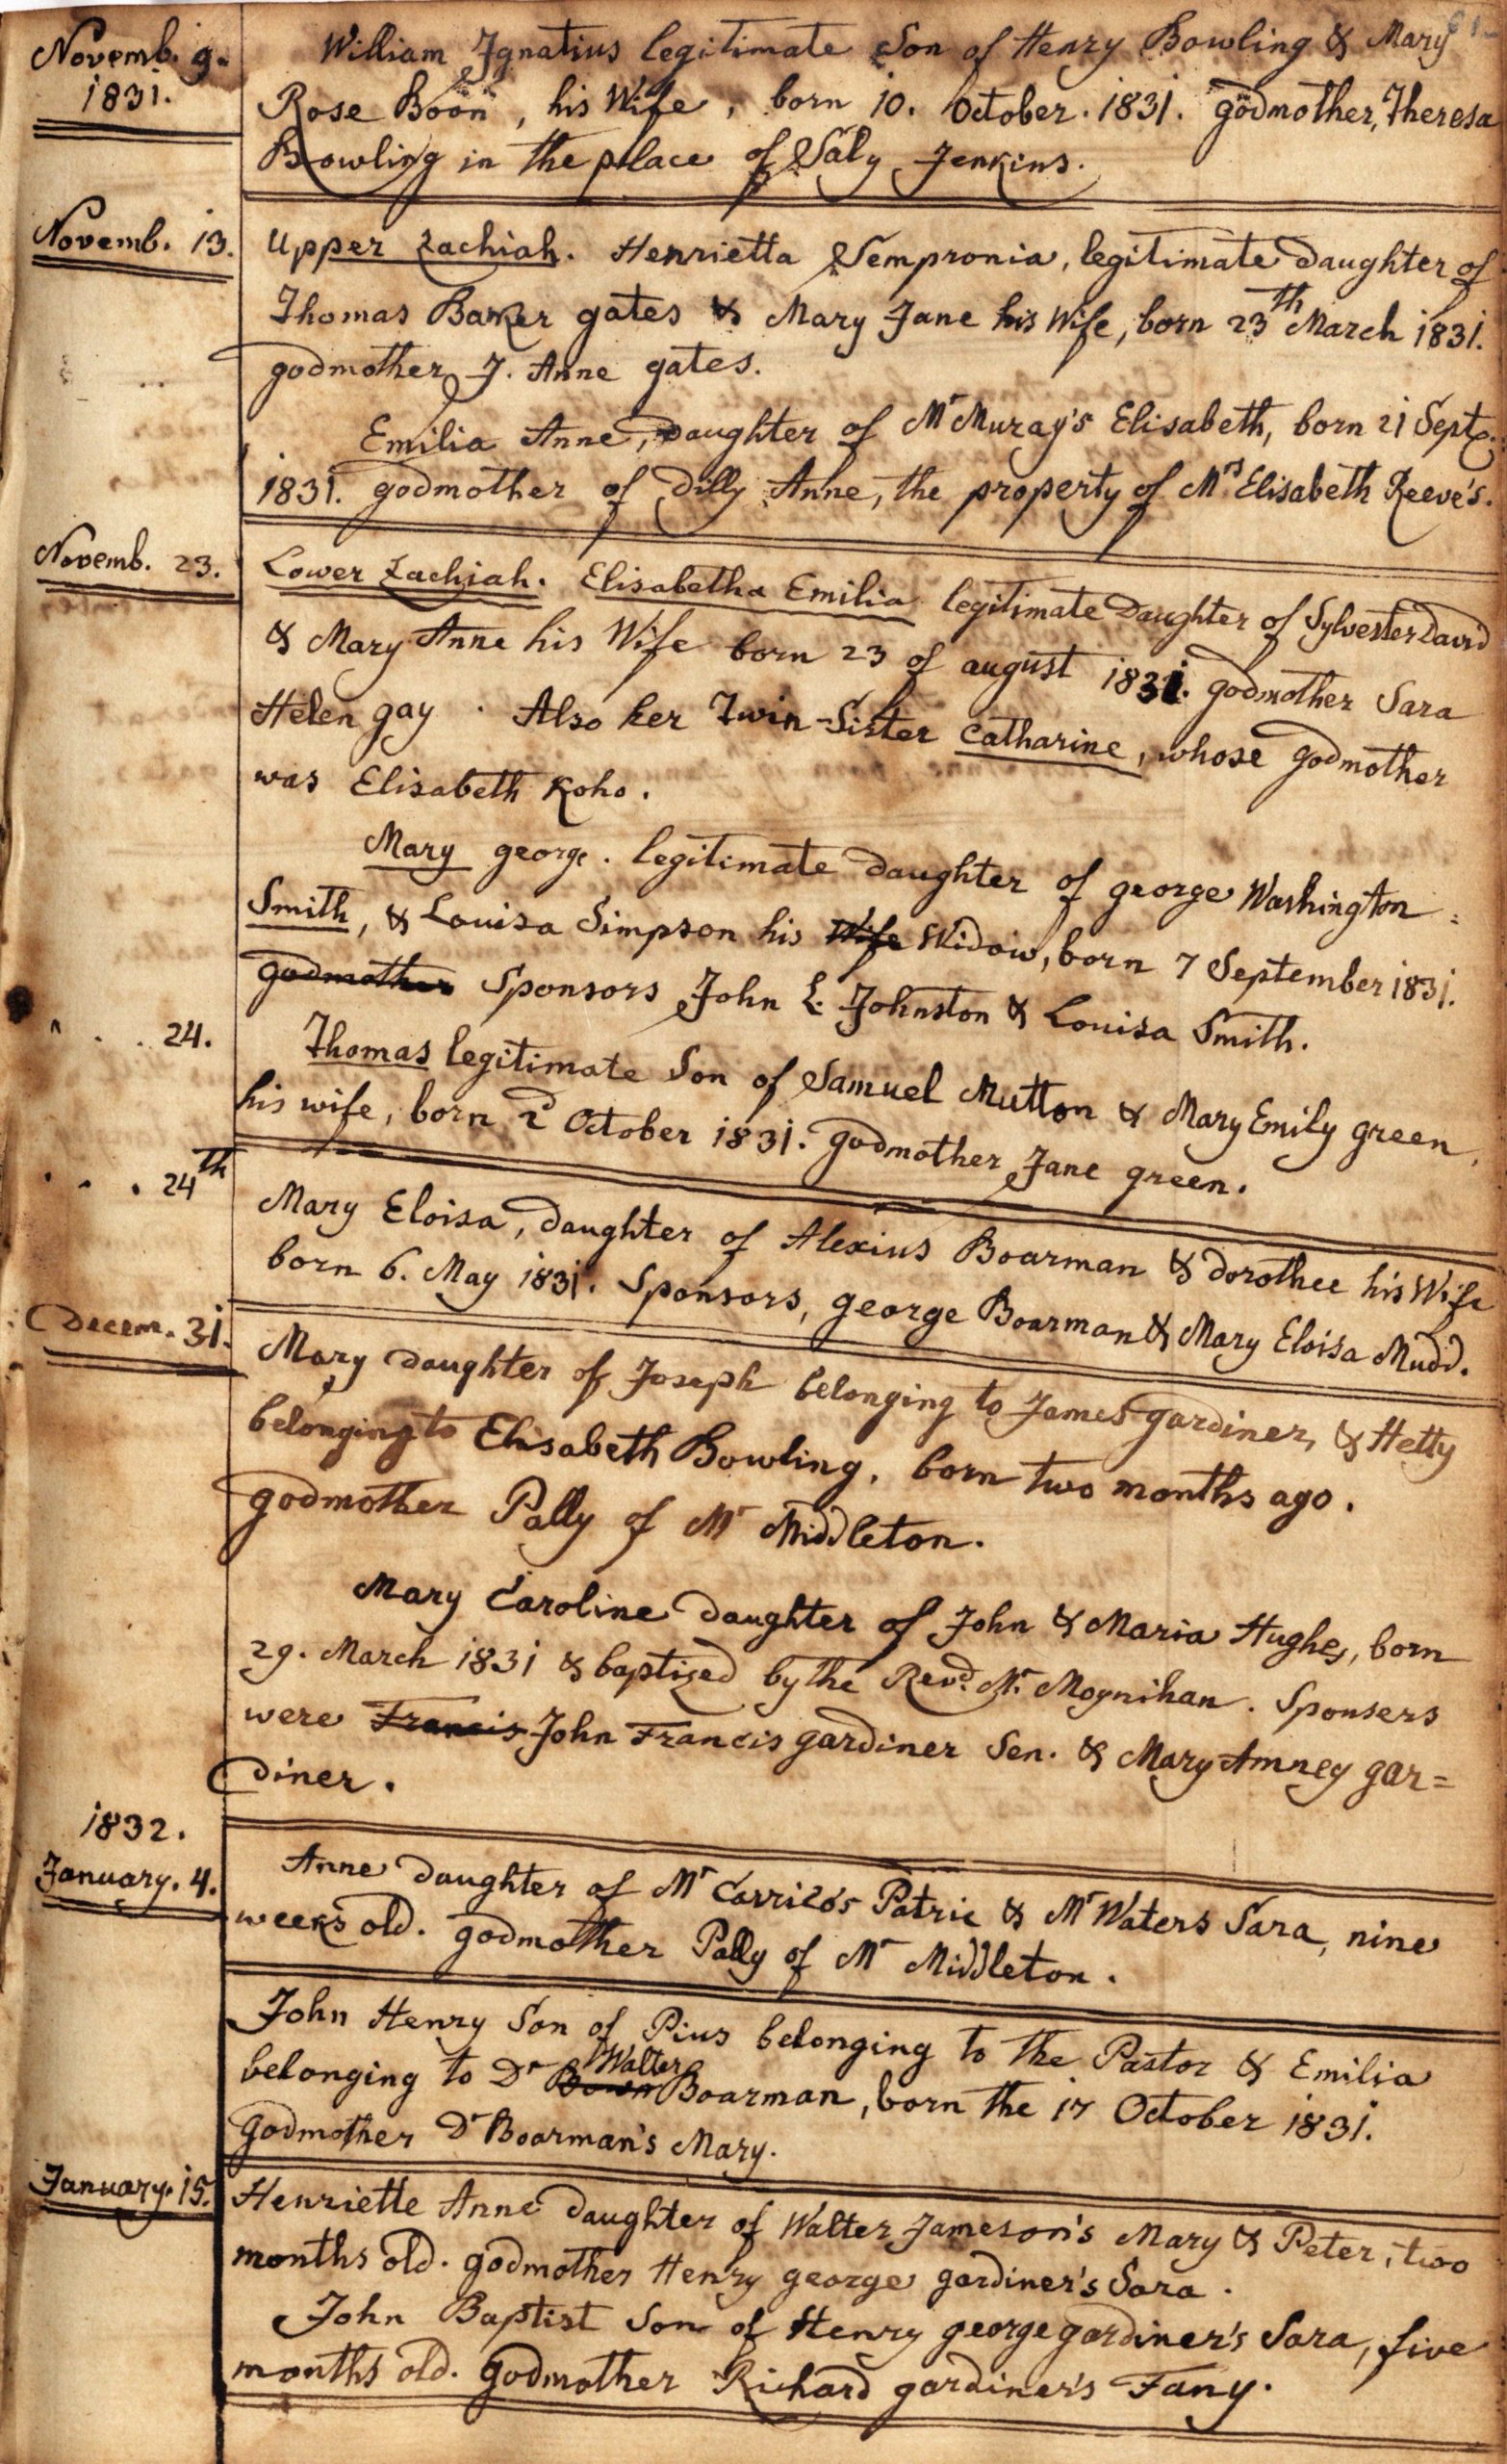 61.
Novemb. 9.
1831.
William Ignatius legitimate Son of Henry Bowling & Mary
Rose Boon, his Wife, born 10. October. 1831. godmother, Theresa
Bowling in the place of Saly Jenkins.
Novemb. 13.
Upper Zachiah. Henrietta Sempronia, legitimate daughter of
Thomas Baker gates & Mary Jane his Wife, born 23th March 1831.
godmother J. Anne gates.
Emilia Anne, Daughter of Mr Muray's Elisabeth, born 21 Sept.
1831. godmother of Dilly Anne, the property of Mrs Elisabeth Reeve's.
Novemb. 23.
Lower Zachiah. Elisabetha Emilia legitimate Daughter of Sylvester David
& Mary Anne his Wife born 23 of august 1831. godmother Sara
Helen gay. Also her Twin-Sister Catharine, whose godmother
was Elisabeth Koho.
Mary george. legitimate daughter of george Washington
Smith, & Louisa Simpson his Wife Widow, born 7 September 1831.
godmother Sponsors John L. Johnston & Louisa Smith.
" . . 24.
Thomas legitimate Son of Samuel Mutton & Mary Emily green
his wife, born 2d October 1831. godmother Jane green.
. . . 24th
Mary Eloisa, daughter of Alexius Boarman & dorothee his Wife
born 6. May 1831. Sponsors, george Boarman & Mary Eloisa Mudd.
Decem. 31.
Mary daughter of Joseph belonging to James gardiner, & Hetty
belonging to Elisabeth Bowling, born two months ago.
godmother Pally of Mr Middleton.
Mary Caroline daughter of John & Maria Hughes, born
29. March 1831 & baptized by the Revd. Mr. Moynihan. Sponsers
were Francis John Francis gardiner Sen. & Mary Amney gar=
diner.
1832.
January. 4.
Anne daughter of Mr Carrico's Patric & Mr Waters Sara, nine
weeks old. godmother Pally of Mr Middleton.
John Henry Son of Pius belonging to the Pastor & Emilia
belonging to Dr Bown Walter Boarman, born the 17 October 1831.
godmother Dr Boarman's Mary.
January. 15.
Henriette Anne daughter of Walter Jameson's Mary & Peter, two
months old. godmother Henry george gardiner's Sara.
John Baptist Son of Henry george gardiner's Sara, five
months old. godmother Richard gardiner's Fany.